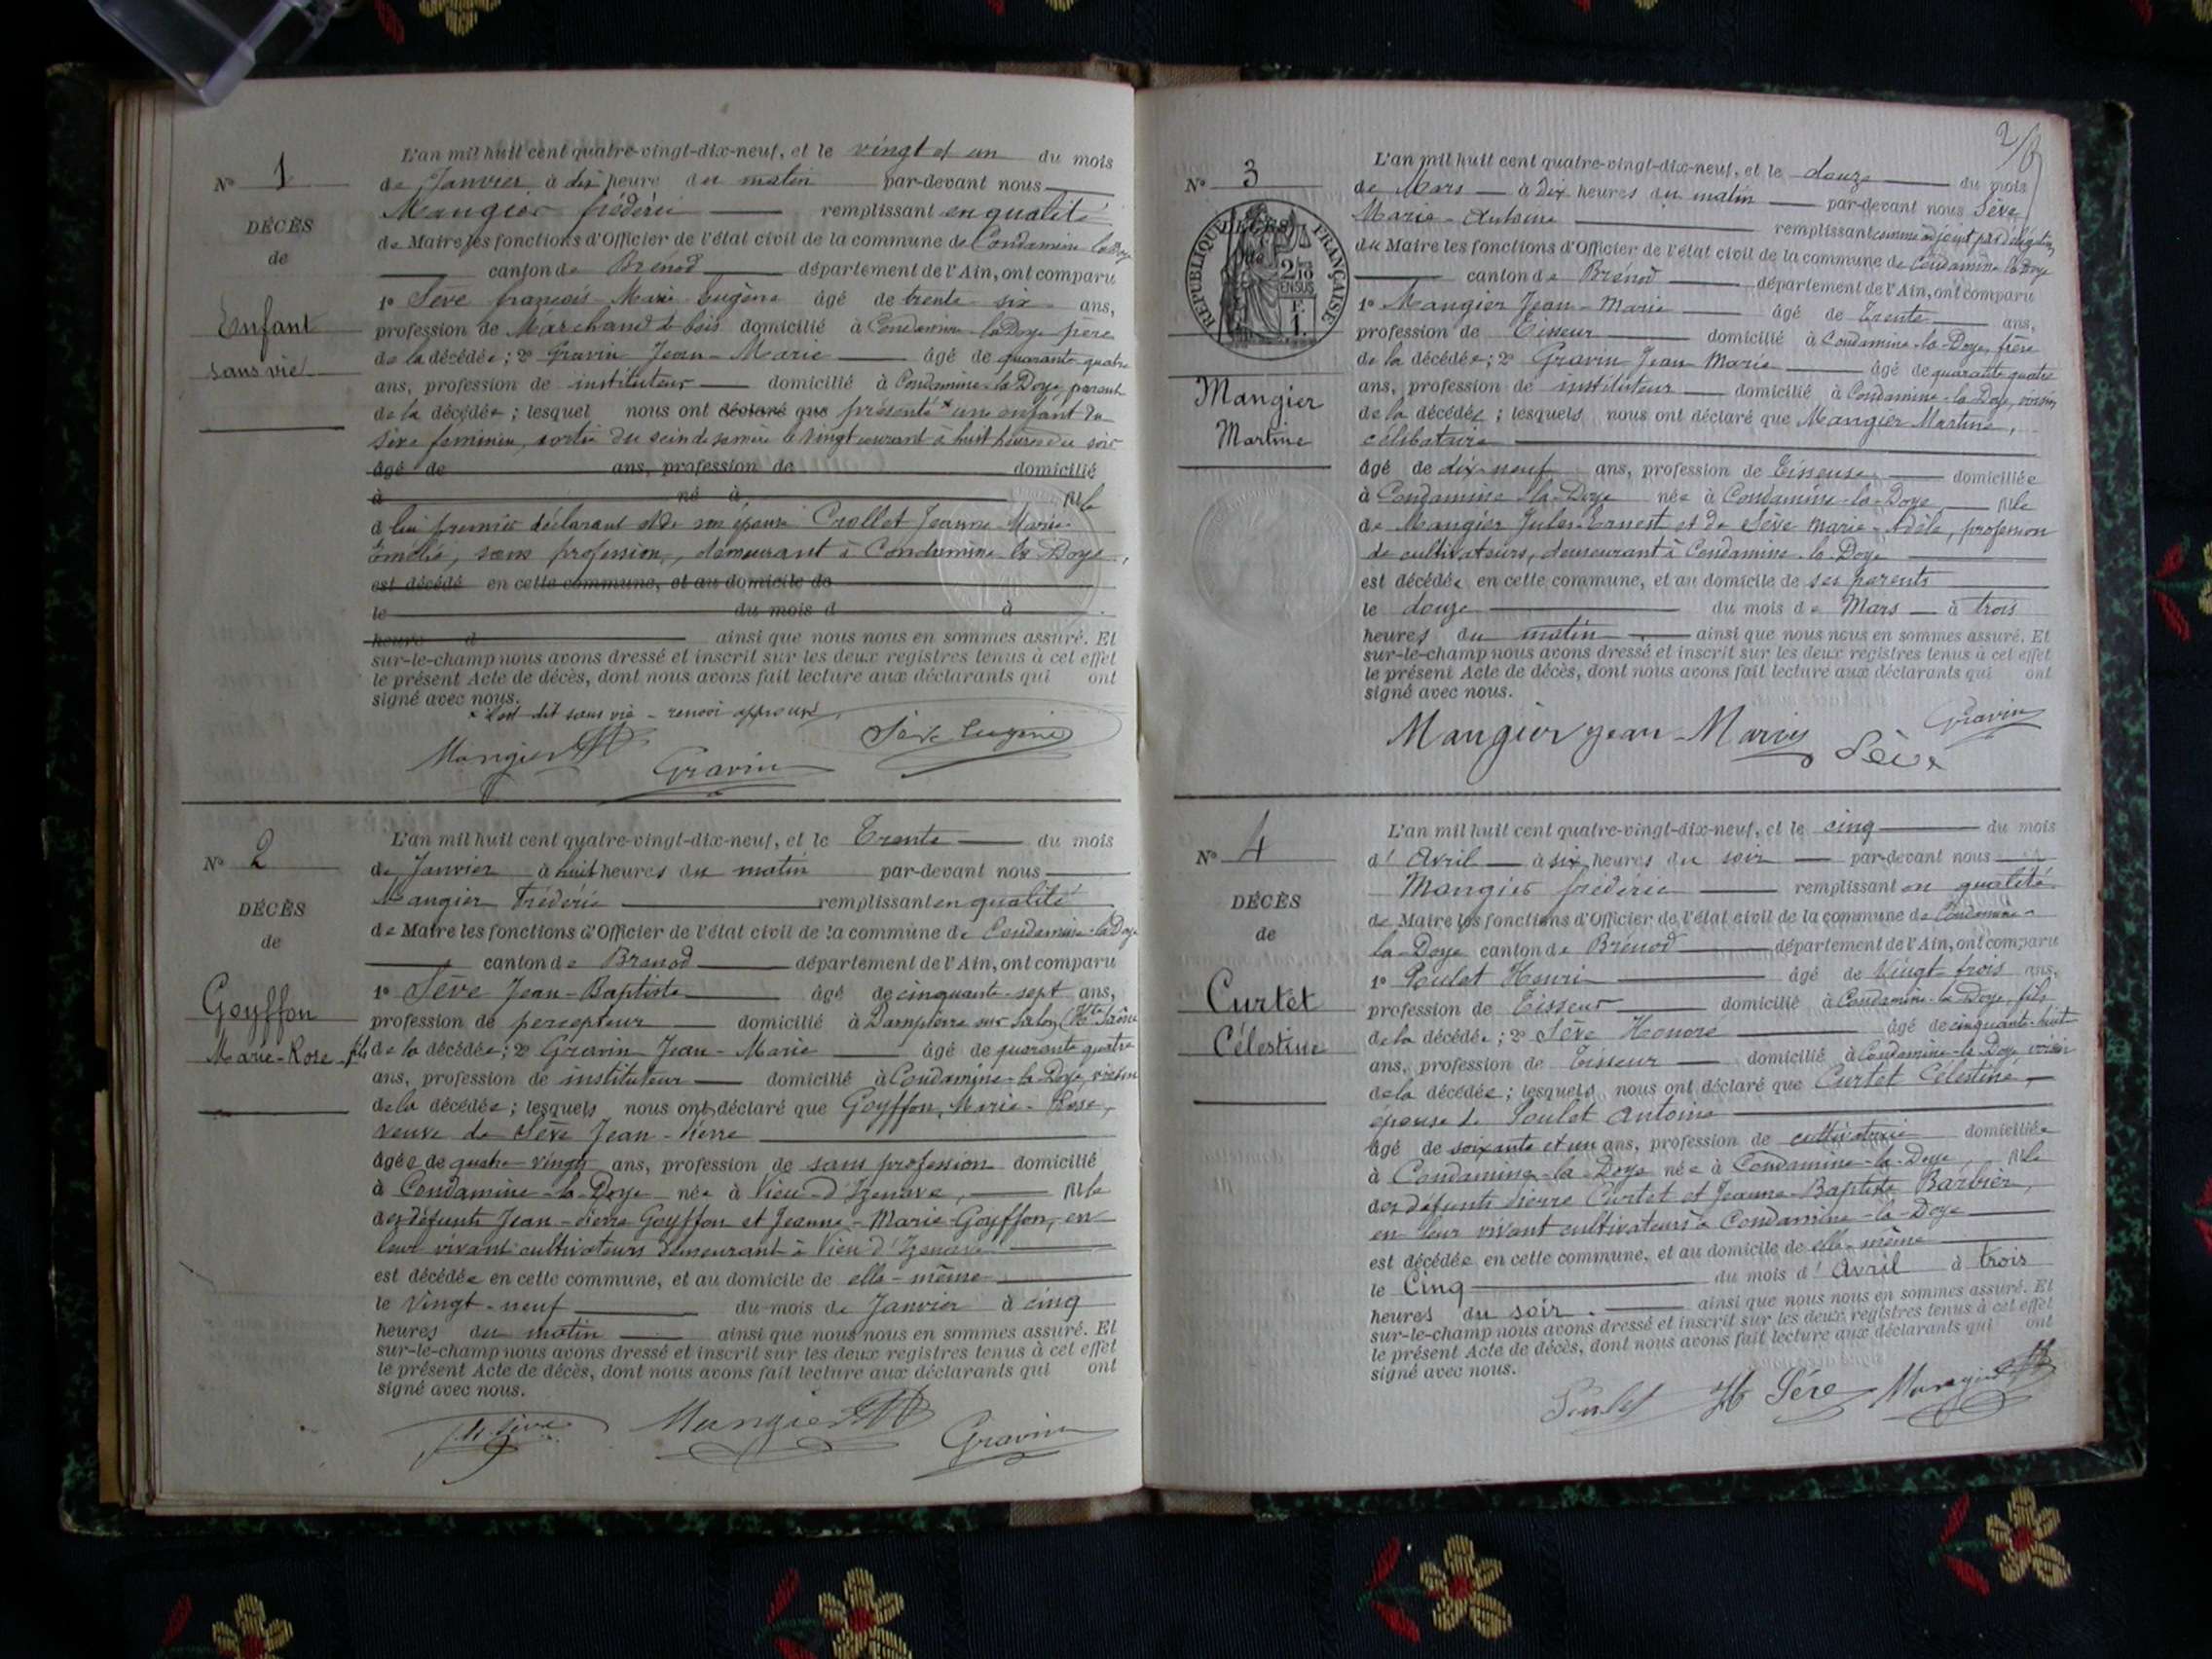 N° 1
DÉCÈS
de
Enfant
sans vie
L'an mil huit cent quatre-vingt-dix-neuf, et le vingt et un du mois
de Janvier à dix heure du matin par-devant nous
Mangier frédéric remplissant en qualité
de Maire les fonctions d'Officier de l'état civil de la commune de Condamine la Doye
canton de Brénod département de l'Ain, ont comparu
1° Sève françois Marie Eugène âgé de trente-six ans,
profession de Marchand de bois domicilié à Condamine la Doye père
de la décédée; 2° Gravin Jean-Marie âgé de quarante-quatre
ans, profession de instituteur domicilié à Condamine-la-Doye, parent
de la décédée; lesquel nous ont déclaré que présenté × une enfant du
sèxe feminin, sortie du sein de sa mère le vingt courant à huit heures du soir
âgé de ans, profession de domicilié
à né à fille
d lui premier déclarant et de son épouse Crollet Jeanne-Marie-
Emélie, sans profession, demeurant à Condamine-la-Doye,
est décédé en cette commune, et au domicile de
le du mois d à
heure d ainsi que nous nous en sommes assuré. Et
sur-le-champ nous avons dressé et inscrit sur les deux registres tenus à cet effet
le présent Acte de décès, dont nous avons fait lecture aux déclarants qui ont
signé avec nous.
× dit sans vie - renvoi approuvé,
Mangier Gravin Sève Eugène
N° 2
DÉCÈS
de
Goyffon
Marie-Rose
L'an mil huit cent quatre-vingt-dix-neuf, et le Trente du mois
de Janvier à huit heures du matin par-devant nous
Mangier Frédéric remplissant en qualité
de Maire les fonctions d'Officier de l'état civil de la commune de Condamine-la-Doye
canton de Brenod département de l'Ain, ont comparu
1° Sève Jean-Baptiste âgé de cinquante-sept ans,
profession de percepteur domicilié à Dampierre sur Salon (Hte Saône
fils de la décédée; 2° Gravin Jean-Marie âgé de quarante quatre
ans, profession de instituteur domicilié à Condamine-la-Doye, voisin
de la décédée; lesquels nous ont déclaré que Goyffon, Marie-Rose,
veuve de Sève Jean-Pierre
âgée de quatre-vingts ans, profession de sans profession domicilié
à Condamine-la-Doye née à Vieu-d'Izenave, fille
des défunts Jean-Pierre Goyffon et Jeanne-Marie Goyffon, en
leur vivant cultivateurs demeurant à Vieu d'Izenave
est décédée en cette commune, et au domicile de elle-même
le Vingt-neuf du mois de Janvier à cinq
heures du matin ainsi que nous nous en sommes assuré. Et
sur-le-champ nous avons dressé et inscrit sur les deux registres tenus à cet effet
le présent Acte de décès, dont nous avons fait lecture aux déclarants qui ont
signé avec nous.
Sève Mangier Gravin
2
N° 3
DÉCÈS
de
RÉPUBLIQUE FRANÇAISE
2/10 EN SUS
1 F.
Mangier
Martine
L'an mil huit cent quatre-vingt-dix-neuf, et le douze du mois
de Mars à dix heures du matin par-devant nous Sève
Marie-Antoine remplissant comme adjoint par délégation
du Maire les fonctions d'Officier de l'état civil de la commune de Condamine la Doye
canton de Brénod département de l'Ain, ont comparu
1° Mangier Jean-Marie âgé de Trente ans,
profession de Tisseur domicilié à Condamine-la-Doye, frère
de la décédée; 2° Gravin Jean Marie âgé de quarante quatre
ans, profession de instituteur domicilié à Condamine-la-Doye, voisin
de la décédée; lesquels nous ont déclaré que Mangier Martine,
célibataire
âgé de dix-neuf ans, profession de Tisseuse domiciliée
à Condamine-la-Doye née à Condamine-la-Doye, fille
de Mangier Jules-Ernest et de Sève Marie-Adèle, profession
de cultivateurs, demeurant à Condamine-la-Doye
est décédée en cette commune, et au domicile de ses parents
le douze du mois de Mars à trois
heures du matin ainsi que nous nous en sommes assuré. Et
sur-le-champ nous avons dressé et inscrit sur les deux registres tenus à cet effet
le présent Acte de décès, dont nous avons fait lecture aux déclarants qui ont
signé avec nous.
Mangier jean-Marie Sève Gravin
N° 4
DÉCÈS
de
Curtet
Célestine
L'an mil huit cent quatre-vingt-dix-neuf, et le cinq du mois
d'Avril à six heures du soir par-devant nous
Mangier frédéric remplissant en qualité
de Maire les fonctions d'Officier de l'état civil de la commune de Condamine-
la-Doye canton de Brénod département de l'Ain, ont comparu
1° Poulet Henri âgé de Vingt-trois ans,
profession de Tisseur domicilié à Condamine-la-Doye, fils
de la décédée; 2° Sève Honoré âgé de cinquante-huit
ans, profession de Tisseur domicilié à Condamine-la-Doye, voisin
de la décédée; lesquels nous ont déclaré que Curtet Célestine,
épouse de Poulet Antoine
âgé de soixante et un ans, profession de cultivatrice domiciliée
à Condamine-la-Doye née à Condamine-la-Doye, fille
des défunts Pierre Curtet et Jeanne-Baptiste Barbier,
en leur vivant cultivateurs à Condamine-la-Doye
est décédée en cette commune, et au domicile de elle-même
le Cinq du mois d'Avril à trois
heures du soir. ainsi que nous nous en sommes assuré. Et
sur-le-champ nous avons dressé et inscrit sur les deux registres tenus à cet effet
le présent Acte de décès, dont nous avons fait lecture aux déclarants qui ont
signé avec nous.
Poulet H Sève Mangier